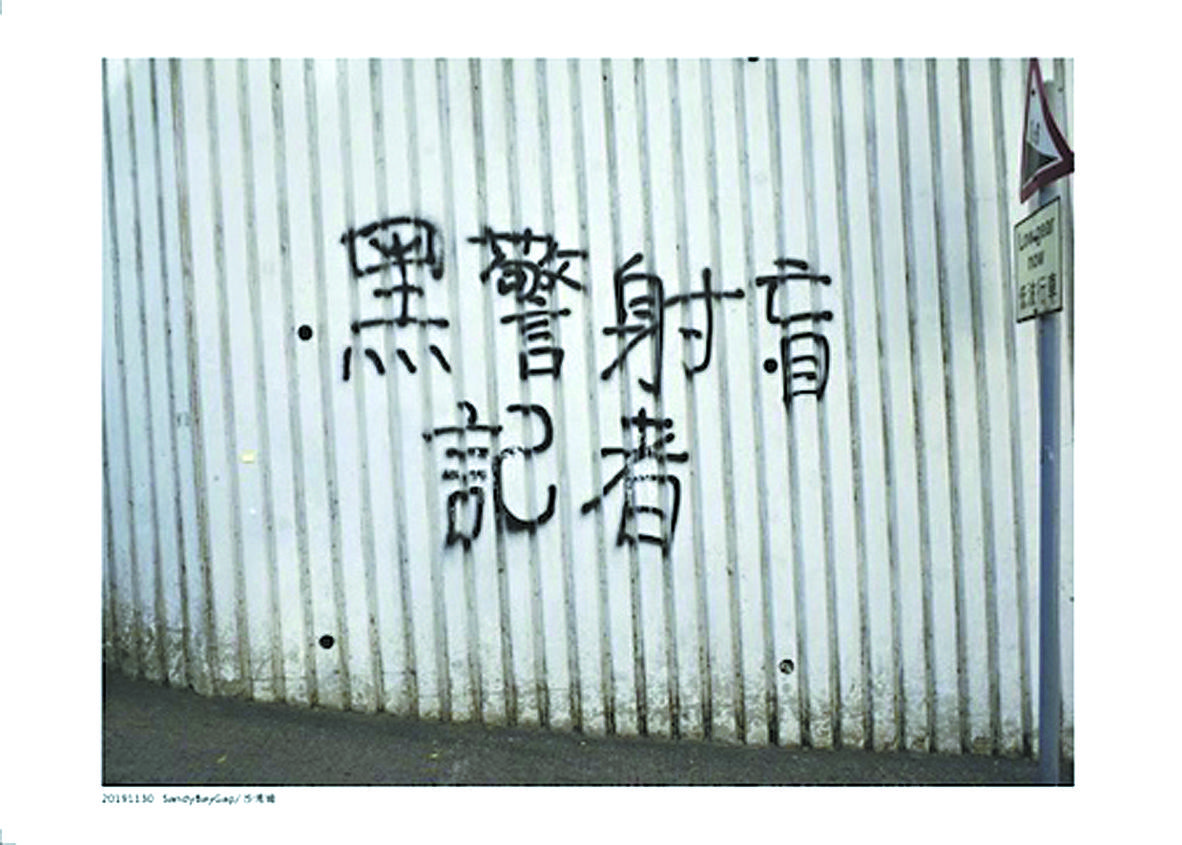 黑警射盲
記者
1:8
Low gear
now
低波行車
20191130 SandyBayGap/沙灣徑